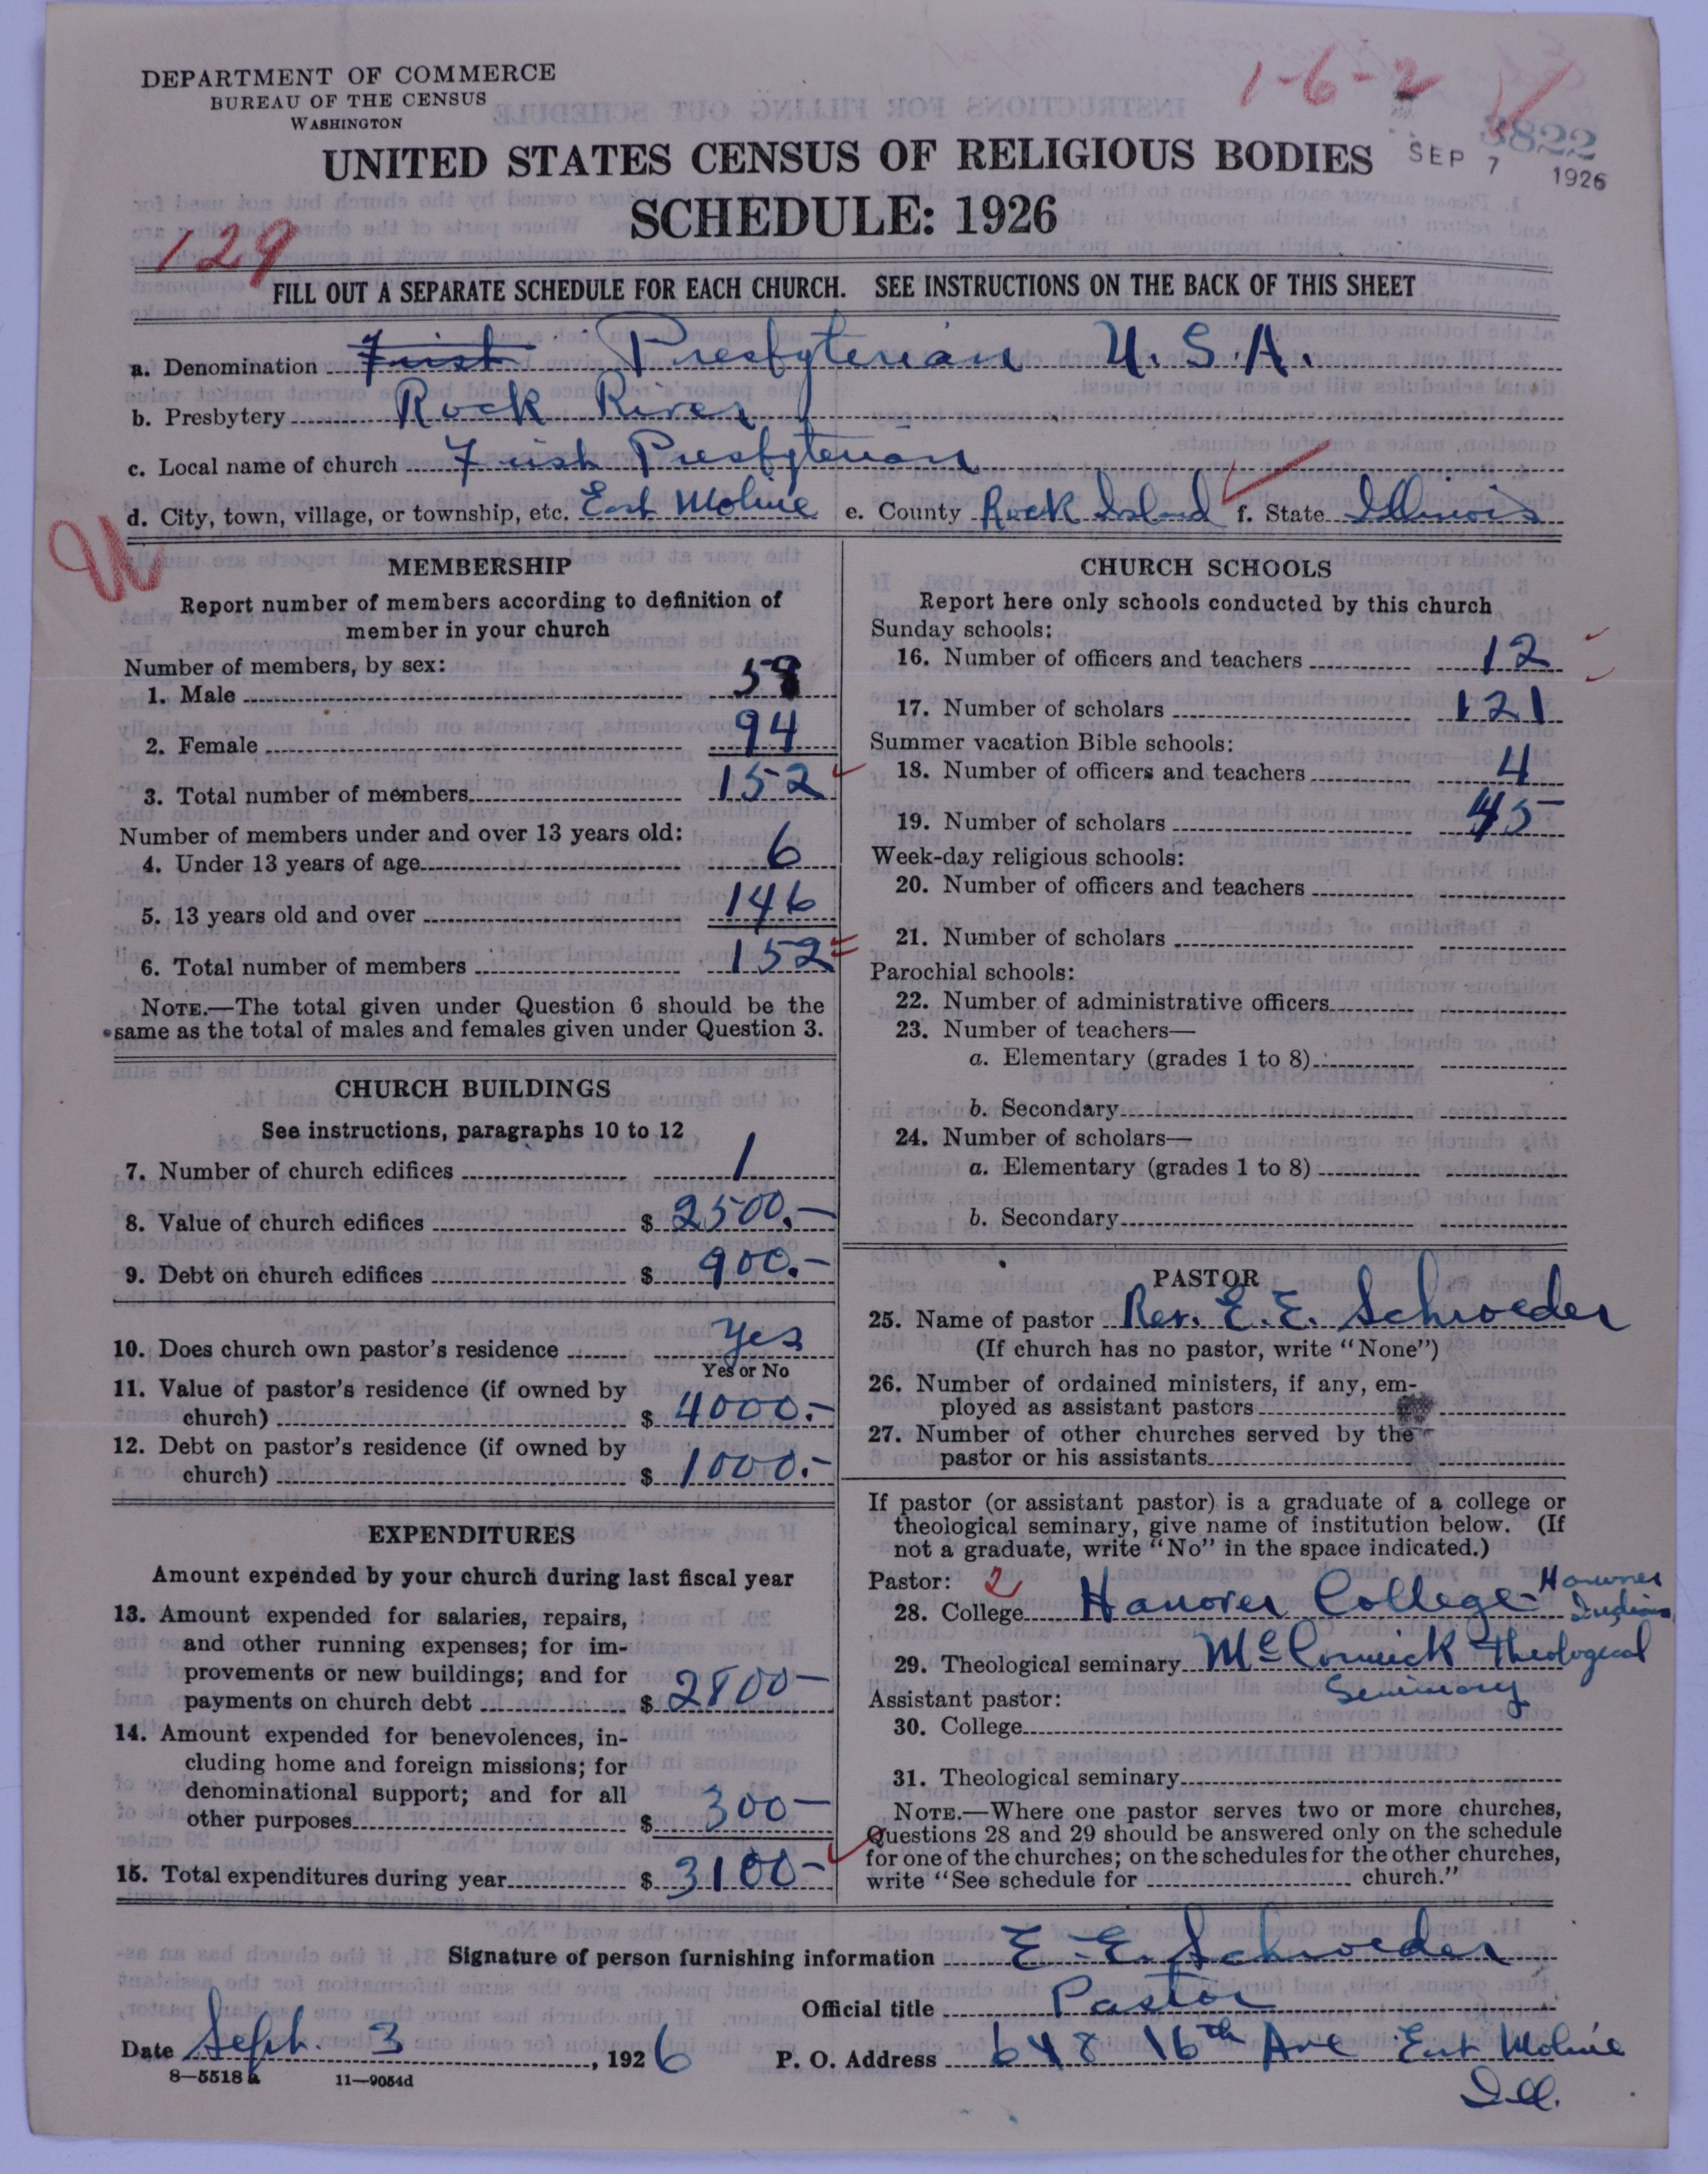 DEPARTMENT OF COMMERCE
BUREAU OF THE CENSUS
WASHINGTON
1-6-2
3822
SEP 7 1926
UNITED STATES CENSUS OF RELIGIOUS BODIES
SCHEDULE: 1926
129
FILL OUT A SEPARATE SCHEDULE FOR EACH CHURCH. SEE INSTRUCTIONS ON THE BACK OF THIS SHEET
a. Denomination First Presbyterian U.S.A.
b. Presbytery Rock River
c. Local name of church First Presbyterian
d. City, town, village, or township, etc. East Moline e. County Rock Island f. State Illinois
MEMBERSHIP
Report number of members according to definition of
member in your church
Number of members, by sex:
1. Male 58
2. Female 94
3. Total number of members 152
Number of members under and over 13 years old:
4. Under 13 years of age 6
5. 13 years old and over 146
6. Total number of members 152
NOTE.—The total given under Question 6 should be the
same as the total of males and females given under Question 3.
CHURCH BUILDINGS
See instructions, paragraphs 10 to 12
7. Number of church edifices 1
8. Value of church edifices $ 2500.-
9. Debt on church edifices $ 900.-
10. Does church own pastor's residence Yes
Yes or No
11. Value of pastor's residence (if owned by
church) $ 4000.-
12. Debt on pastor's residence (if owned by
church) $ 1000.-
EXPENDITURES
Amount expended by your church during last fiscal year
13. Amount expended for salaries, repairs,
and other running expenses; for im-
provements or new buildings; and for
payments on church debt $ 2800-
14. Amount expended for benevolences, in-
cluding home and foreign missions; for
denominational support; and for all
other purposes $ 300-
15. Total expenditures during year $ 3100-
CHURCH SCHOOLS
Report here only schools conducted by this church
Sunday schools:
16. Number of officers and teachers 12
17. Number of scholars 121
Summer vacation Bible schools:
18. Number of officers and teachers 4
19. Number of scholars 45
Week-day religious schools:
20. Number of officers and teachers
21. Number of scholars
Parochial schools:
22. Number of administrative officers
23. Number of teachers—
a. Elementary (grades 1 to 8)
b. Secondary
24. Number of scholars—
a. Elementary (grades 1 to 8)
b. Secondary
PASTOR
25. Name of pastor Rev. E. E. Schroeder
(If church has no pastor, write "None")
26. Number of ordained ministers, if any, em-
ployed as assistant pastors
27. Number of other churches served by the
pastor or his assistants
If pastor (or assistant pastor) is a graduate of a college or
theological seminary, give name of institution below. (If
not a graduate, write "No" in the space indicated.)
Pastor: 2
28. College Hanover College Hanover Indiana
29. Theological seminary McCormick Theological
Seminary
Assistant pastor:
30. College
31. Theological seminary
NOTE.—Where one pastor serves two or more churches,
Questions 28 and 29 should be answered only on the schedule
for one of the churches; on the schedules for the other churches,
write "See schedule for church."
Signature of person furnishing information E. E. Schroeder
Official title Pastor
Date Sept. 3, 1926 P. O. Address 648 16th Ave East Moline
Ill.
8—5518a 11—9054d